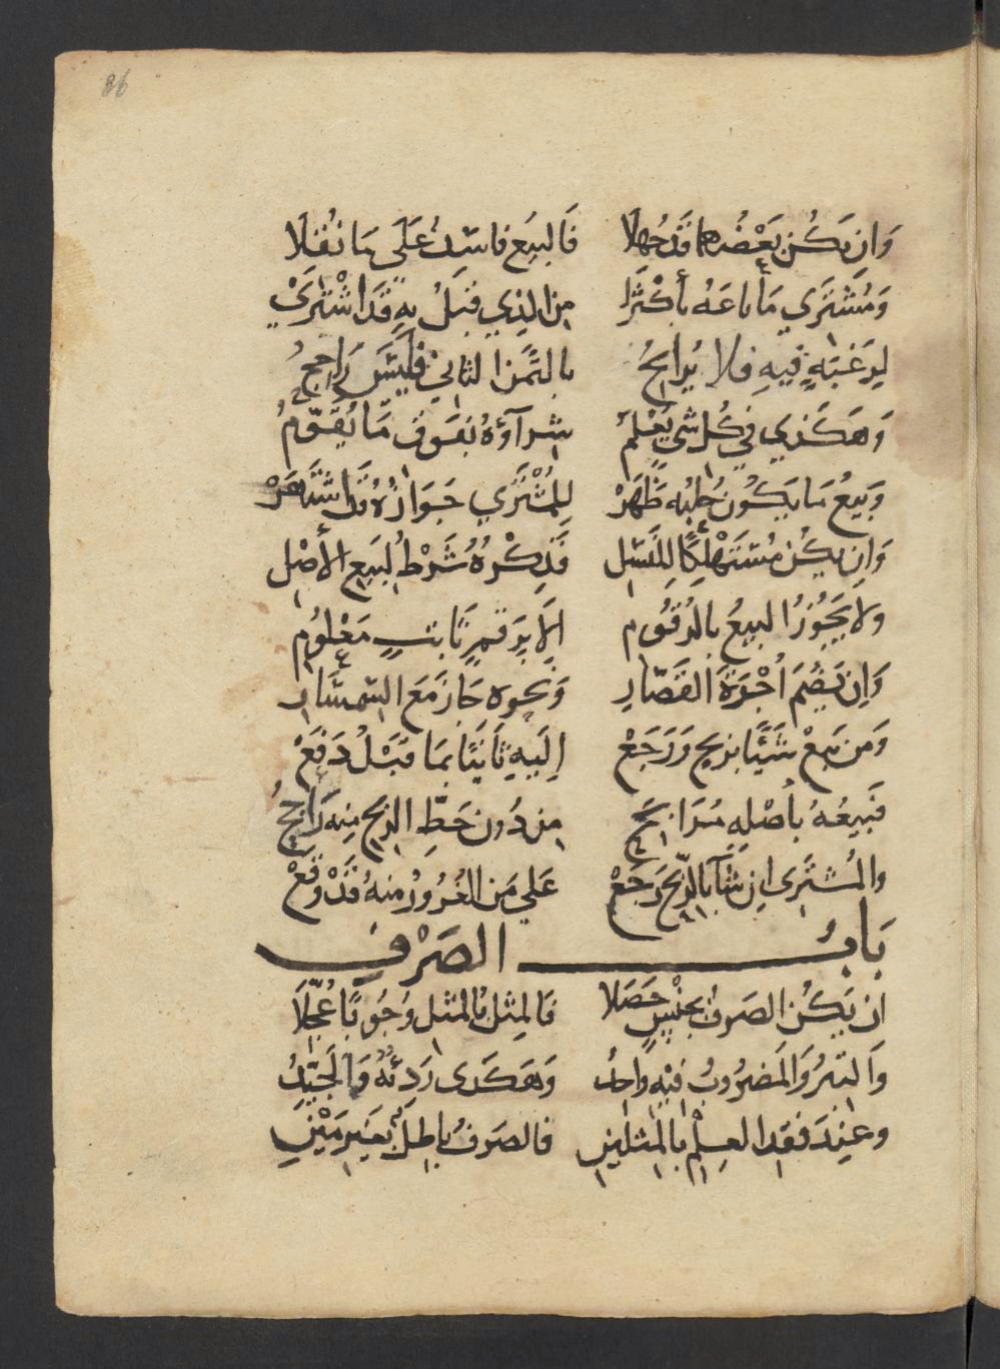 86
وَان يَكُن بَعْضُها قَدْ جُهِلَا فَالبَيعُ فاسِدٌ عَلَى مَا نُقِلَا
وَمُشتَرِي مَا باعَهُ بأكْثَرَا مِن الذِي قَبلُ بِهِ قَدَ اشْتَرَيْ
لِرَغبَتِهِ فِيهِ فلا يُرابِحُ بالثَّمَنِ الثانِيْ فلَيْسَ رَابِحُ
وَهَكَذي فِي كُلِ شيٍ يُعْلَمُ شِرآؤُهُ بفَوقِ مَا يُقَوَّمُ
وَبَيعُ مَا يَكُونُ حُلِبُه ظَهَرْ لِلمُشْتَرِي جَوَازُهُ قَدِ اشتَهَرْ
وَان يكُن مُسْتَهْلِكًا لِلنَسْلِ فَذِكْرُهُ شَرْطٌ لِبَيعِ الأصْلِ
ولا يَجُوْزُ البيعُ بالرُقُومِ اِلَا بِرَقمٍ ثَابِتٍ مَعْلُومِ
وَاِن يَضُمَ اُجْرَةَ القَصَّارِ وَنَحوِه جَازَ مَعَ السِمسَارِ
وَمن يَبِعْ شَيًّا بربحٍ وَرَجَعْ اِلَيهِ ثَانِيًا بمَا قَبْلُ دَفَعْ
فَبَيعُهُ بأصْلِهِ مُرَابِحُ مِن دُون حَطِّ الربحِ مِنه رَاجِحُ
والمُشتَرى اِن شَآ بالرِّبحِ رَجَعْ عَلي مَن الغُرُورُ مِنهُ قَدْ وَقَعْ
بَابُ الصَرْفِ
ان يَكُن الصَرفُ بجِنْسٍ حَصَلَا فَالمِثلُ بالمِثلِ وُجُوبًا عُجِّلَا
وَالتِبرُ وَالمَضرُوبُ فِيْهِ واحِدُ وَهَكَذى رَدِئُهُ وَالجَيِّدُ
وعِندَ فَقدِ العِلمِ بالمِثلينِ فالصَرفُ باطِلٌ بغَيرِ مَيْنِ